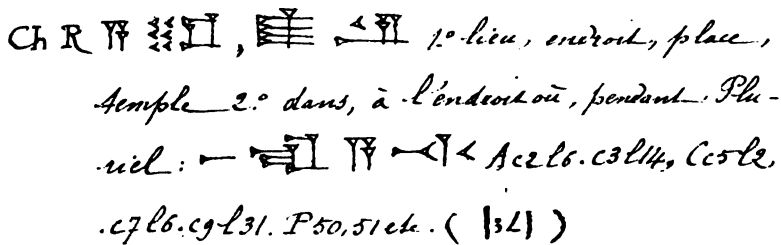 Ch R 𒀀 𒊬 , 𒀾 𒊑 1º lieu, endroit, place,
temple 2º dans, à l'endroit où, pendant. Plu-
riel : 𒀸 𒊏 𒀀 𒋾 Ac2l6. c3l14, Cc5l2,
.c7l6. c9l31. P50,51 etc. ( )